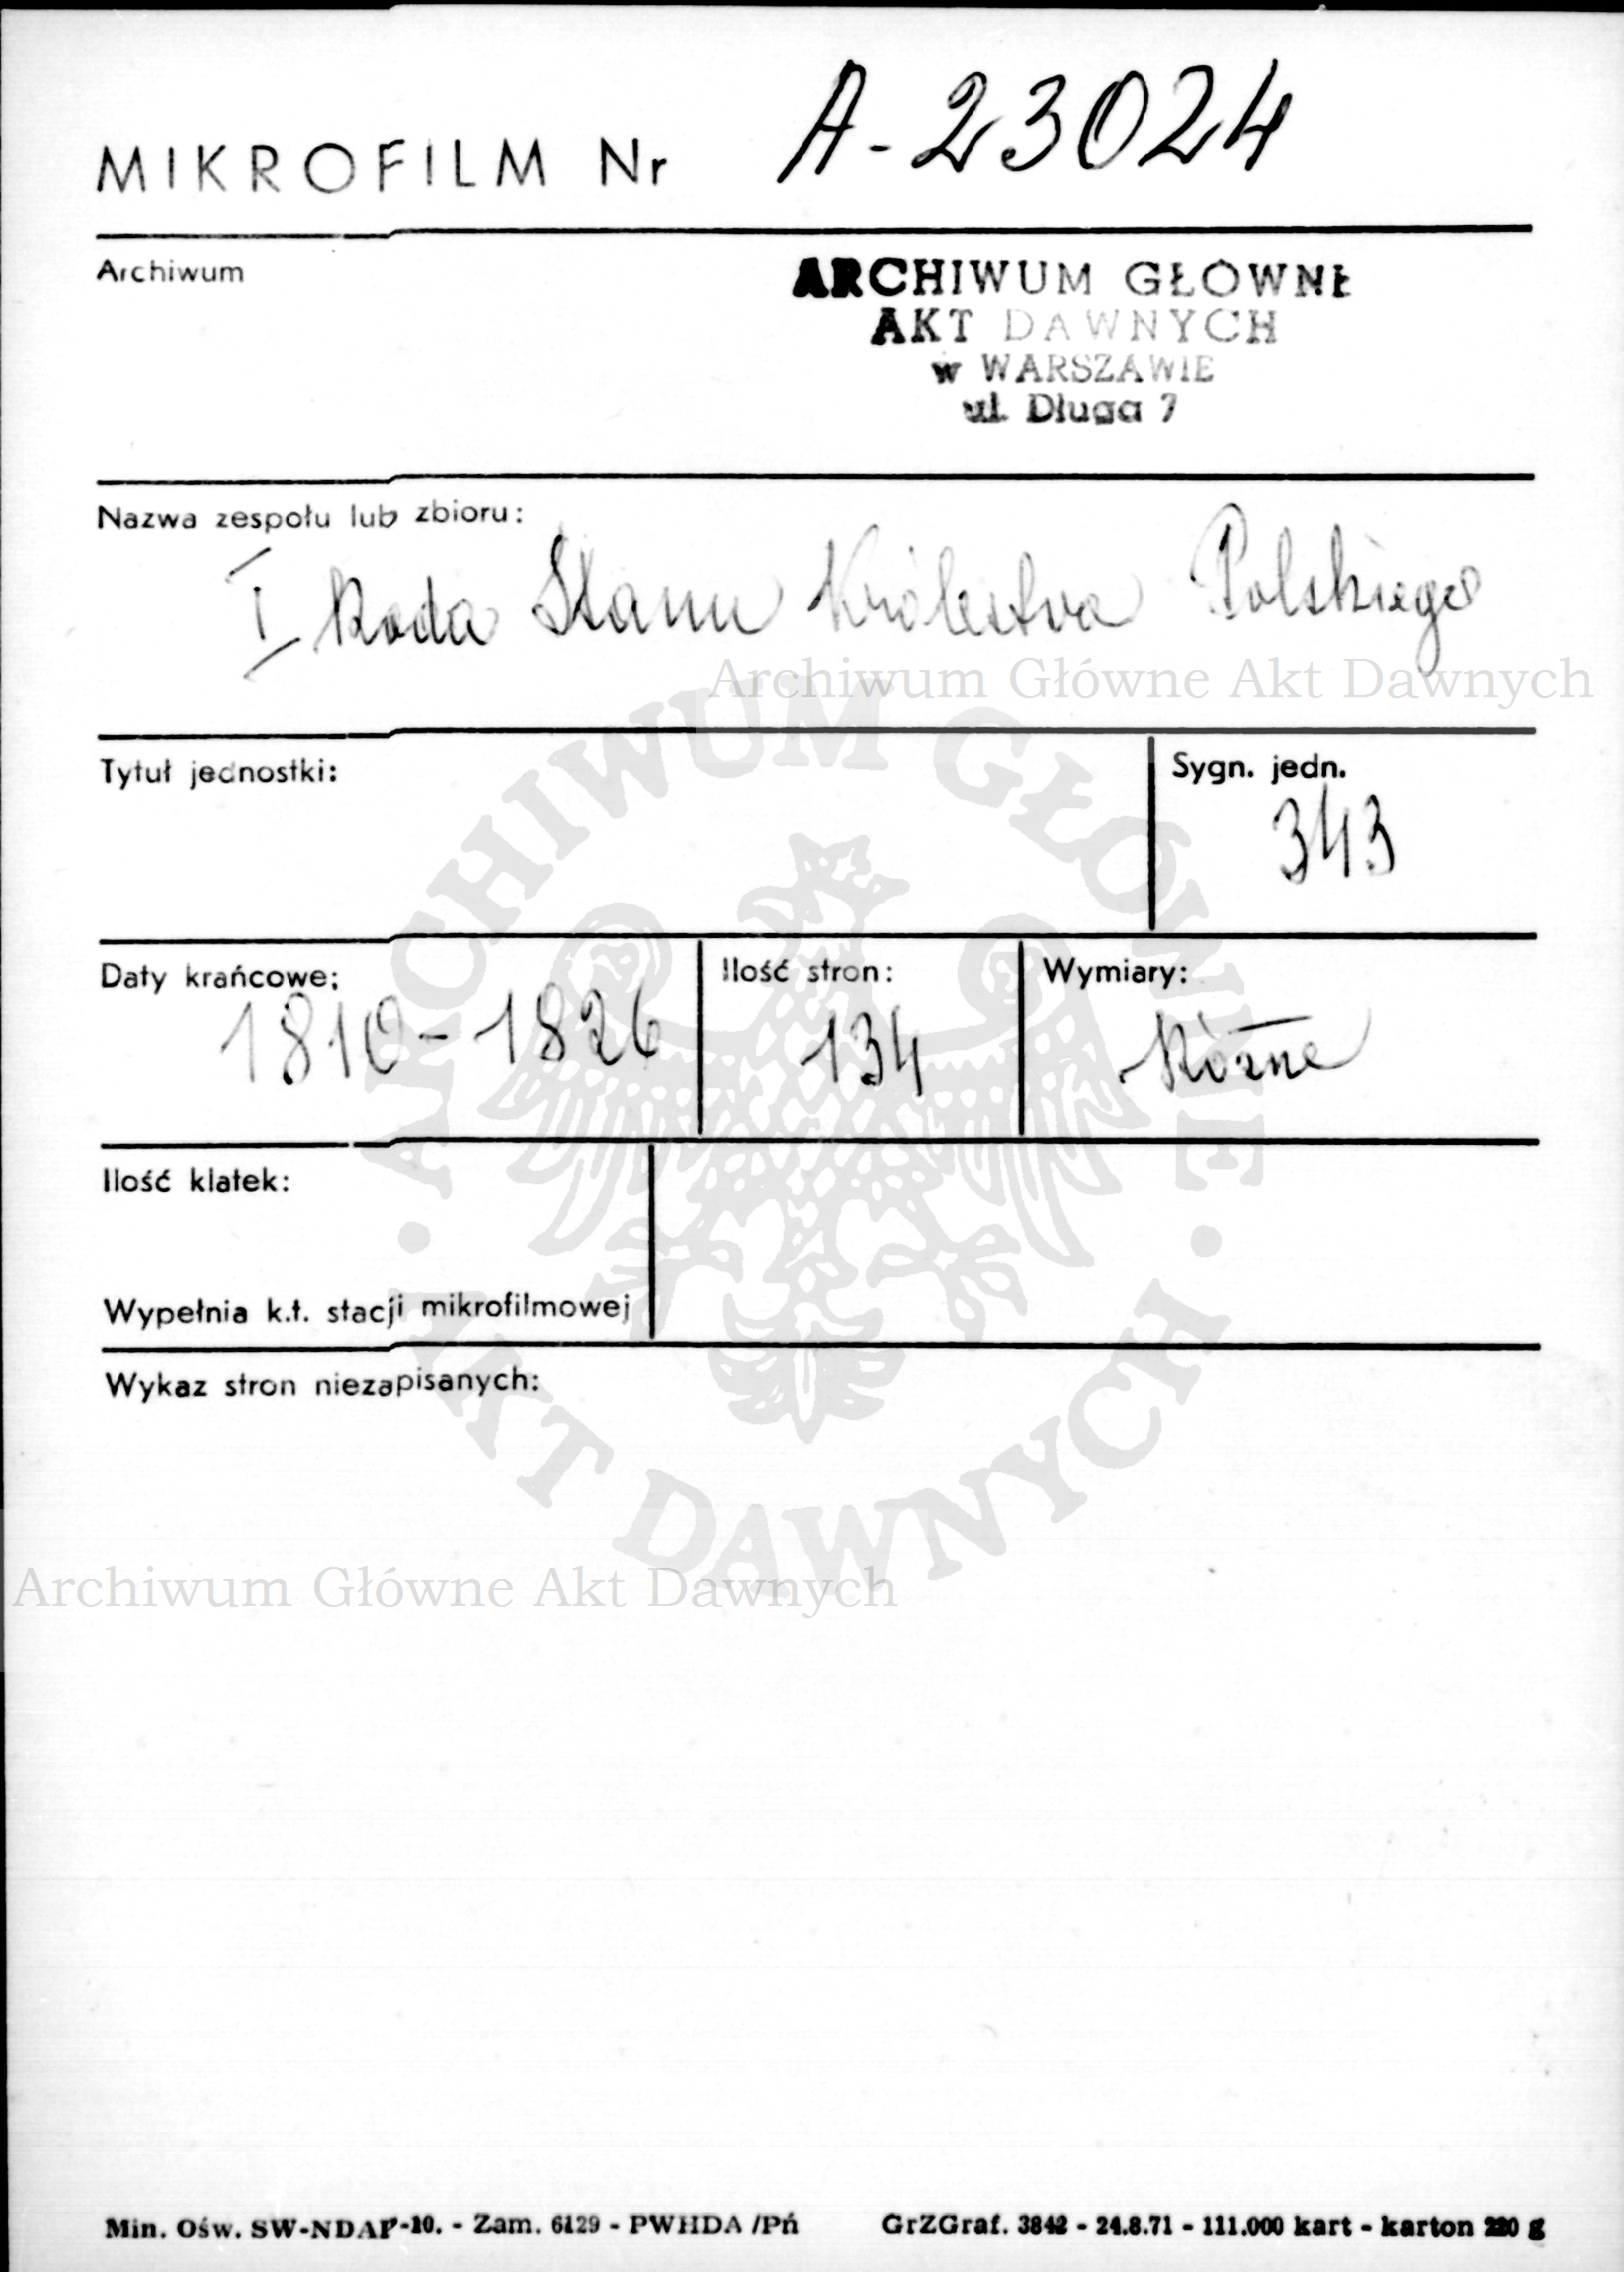 MIKROFILM Nr A-23024
Archiwum
ARCHIWUM GŁÓWNE
AKT DAWNYCH
w WARSZAWIE
ul. Długa 7
Nazwa zespołu lub zbioru:
I Rada Stanu Królestwa Polskiego
Archiwum Główne Akt Dawnych
Tytuł jednostki:
Sygn. jedn.
343
Daty krańcowe:
1810-1826
Ilość stron:
134
Wymiary:
Różne
Ilość klatek:
Wypełnia k.t. stacji mikrofilmowej
Wykaz stron niezapisanych:
ARCHIWUM GŁÓWNE
AKT DAWNYCH
Archiwum Główne Akt Dawnych
Min. Ośw. SW-NDAP-10. - Zam. 6129 - PWHDA /Pń
GrZGraf. 3842 - 24.8.71 - 111.000 kart - karton 220 g